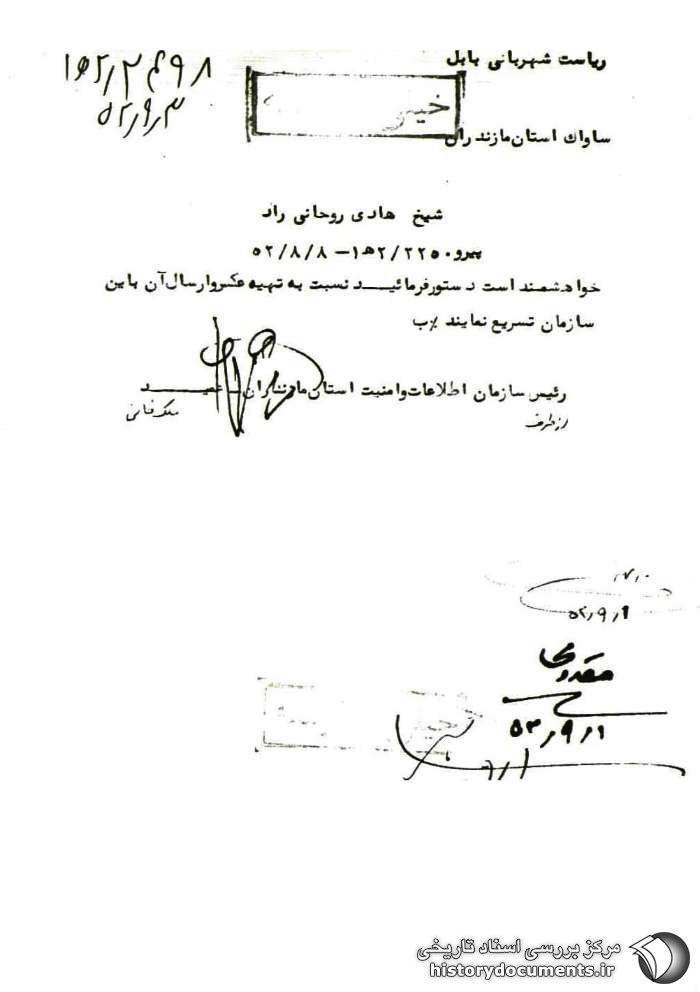 ریاست شهربانی بابل
۵۲٫۹٫۳
خیلی
ساواک استان مازندران
شیخ هادی روحانی راد
پیرو ۲۲۵۰/۲ه۱ – ۵۲/۸/۸
خواهشمند است دستور فرمائیـــد نسبت به تهیه عکس و ارسال آن باین
سازمان تسریع نمایند %ب
رئیس سازمان اطلاعات و امنیت استان مازندران
از طرف
۵۲٫۹٫۱
۵۲٫۹٫۱
مرکز بررسی اسناد تاریخی
historydocuments.ir